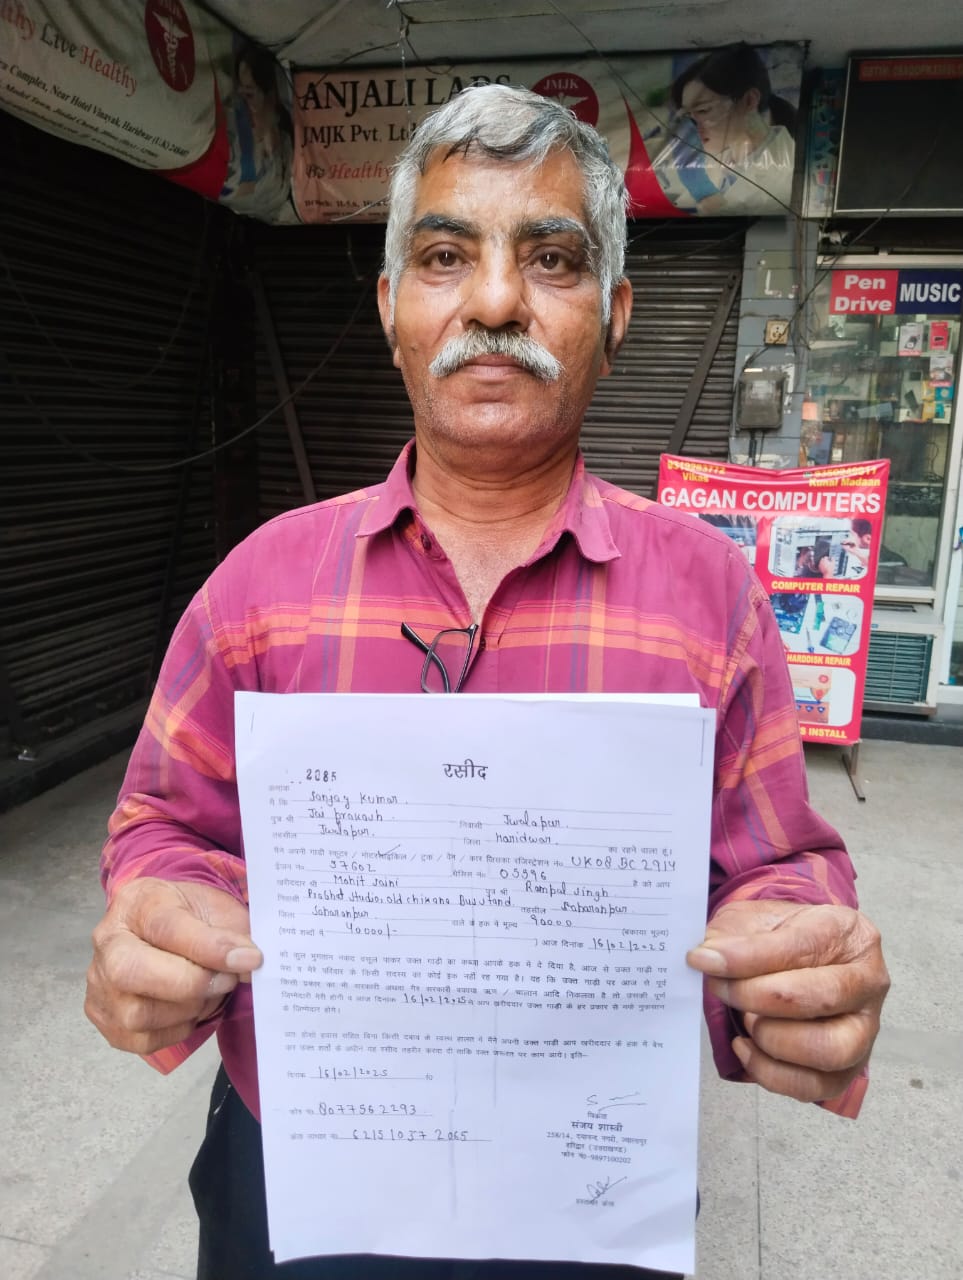 Healthy Live Healthy
ra Complex, Near Hotel Vinayak, Haridwar (UK) 249407
ANJALI LABS
JMJK
JMJK Pvt. Ltd
Be Healthy
Pen
Drive
MUSIC
9319293772
Vikas
Kunal Madaan
GAGAN COMPUTERS
COMPUTER REPAIR
HARDDISK REPAIR
S INSTALL
रसीद
क्रमांक 2085
मैं कि Sanjay Kumar
पुत्र श्री Jai prakash निवासी Jwalapur.
तहसील Jwalapur. जिला Haridwar. का रहने वाला हूं।
मैंने अपनी गाड़ी स्कूटर / मोटरसाईकिल / ट्रक / वैन / कार जिसका रजिस्ट्रेशन नं० UK08 BC 2914
ईंजन नं० 97602 चैसिस नं० 05996 है को आप
खरीददार श्री Mohit Saini पुत्र श्री Rampal Singh
निवासी Prabhat Studio, old chikana Bus stand, तहसील Saharanpur.
जिला Saharanpur. वाले के हक में मूल्य 90000 (बकाया मूल्य)
(रुपये शब्दों में 40000/- ) आज दिनांक 16/02/2025
को कुल भुगतान नकद वसूल पाकर उक्त गाड़ी का कब्जा आपके हक में दे दिया है, आज से उक्त गाड़ी पर
मेरा व मेरे परिवार के किसी सदस्य का कोई हक नहीं रह गया है। यह कि उक्त गाड़ी पर आज से पूर्व
किसी प्रकार का भी सरकारी अथवा गैर सरकारी बकाया ऋण / चालान आदि निकलता है तो उसकी पूर्ण
जिम्मेदारी मेरी होगी व आज दिनांक 16/02/2025 व आप खरीददार उक्त गाड़ी के हर प्रकार से नफे नुकसान
के जिम्मेदार होंगे।
अतः होशो हवास सहित बिना किसी दबाव के स्वस्थ हालत में मैंने अपनी उक्त गाड़ी आप खरीददार के हक में बेच
कर उक्त शर्तों के अधीन यह रसीद तहरीर करवा दी ताकि वक्त जरूरत पर काम आये। इति-
दिनांक 16/02/2025 ई०
फोन नं० 8077562293
क्रेता आधार नं० 621510372065
विक्रेता
संजय शास्त्री
258/14, दयानन्द नगरी, ज्वालापुर
हरिद्वार (उत्तराखण्ड)
फोन नं०-9897100202
हस्ताक्षर क्रेता